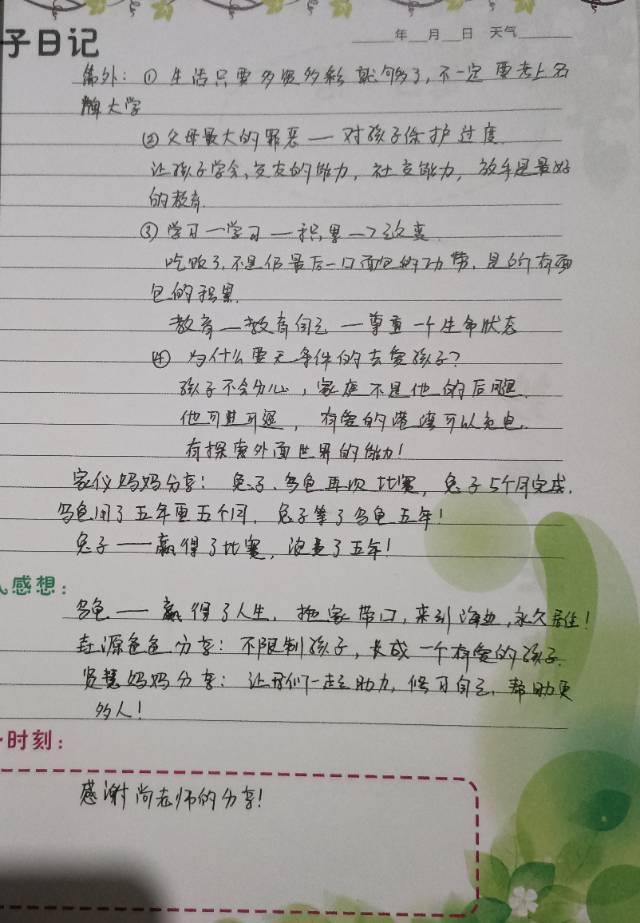 子日记
年 月 日 天气
集外：① 生活只要多姿多彩就够了，不一定要考上名
牌大学
② 父母最大的罪恶一对孩子保护过度.
让孩子学会，交友的能力，社交能力，放手是最好
的教育.
③ 学习一学习一积累一>改变
吃饱了，不是仅最后一口面包的功劳，是所有面
包的积累.
教育一教育自己一尊重一个生命状态
④ 为什么要无条件的去爱孩子？
孩子不会分心，家庭不是他的后腿.
他可进可退，有爱的港湾可以充电.
有探索外面世界的能力！
家仪妈妈分享：兔子.乌龟再次比赛，兔子5个月完成.
乌龟用了五年零五个月，兔子等了乌龟五年！
兔子——赢得了比赛，浪费了五年！
感想：
乌龟——赢得了人生，拖家带口，来到海边，永久居住！
源爸爸分享：不限制孩子，长成一个有爱的孩子.
贤慧妈妈分享：让我们一起助力，修习自己，帮助更
多人！
时刻：
感谢尚老师的分享！